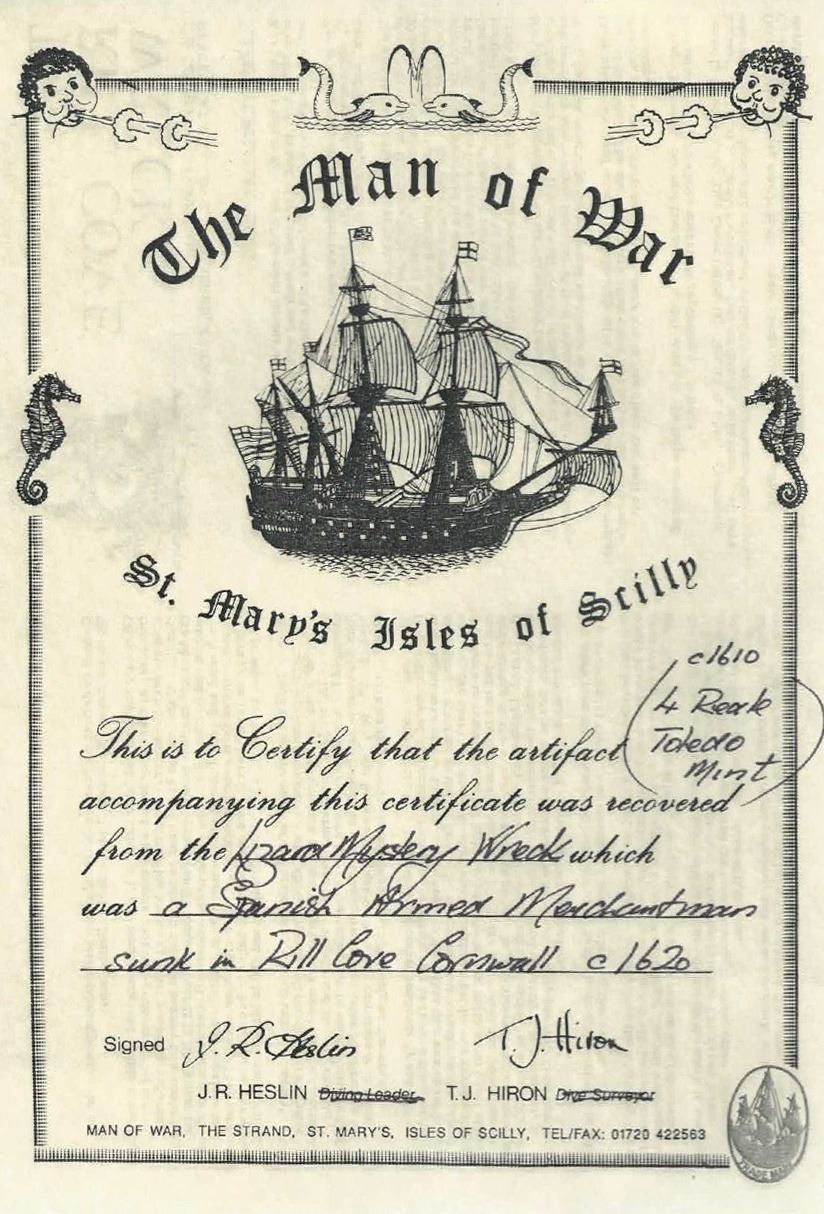 The Man of War
St. Mary's Isles of Scilly
c1610
4 Reale
Toledo
Mint
This is to Certify that the artifact
accompanying this certificate was recovered
from the Lizard Mystery Wreck which
was a Spanish Armed Merchantman
sunk in Rill Cove Cornwall c1620
Signed J.R. Heslin T.J. Hiron
J.R. HESLIN Diving Leader T.J. HIRON Dive Surveyor
MAN OF WAR, THE STRAND, ST. MARY'S, ISLES OF SCILLY, TEL/FAX: 01720 422563
TRADE MARK